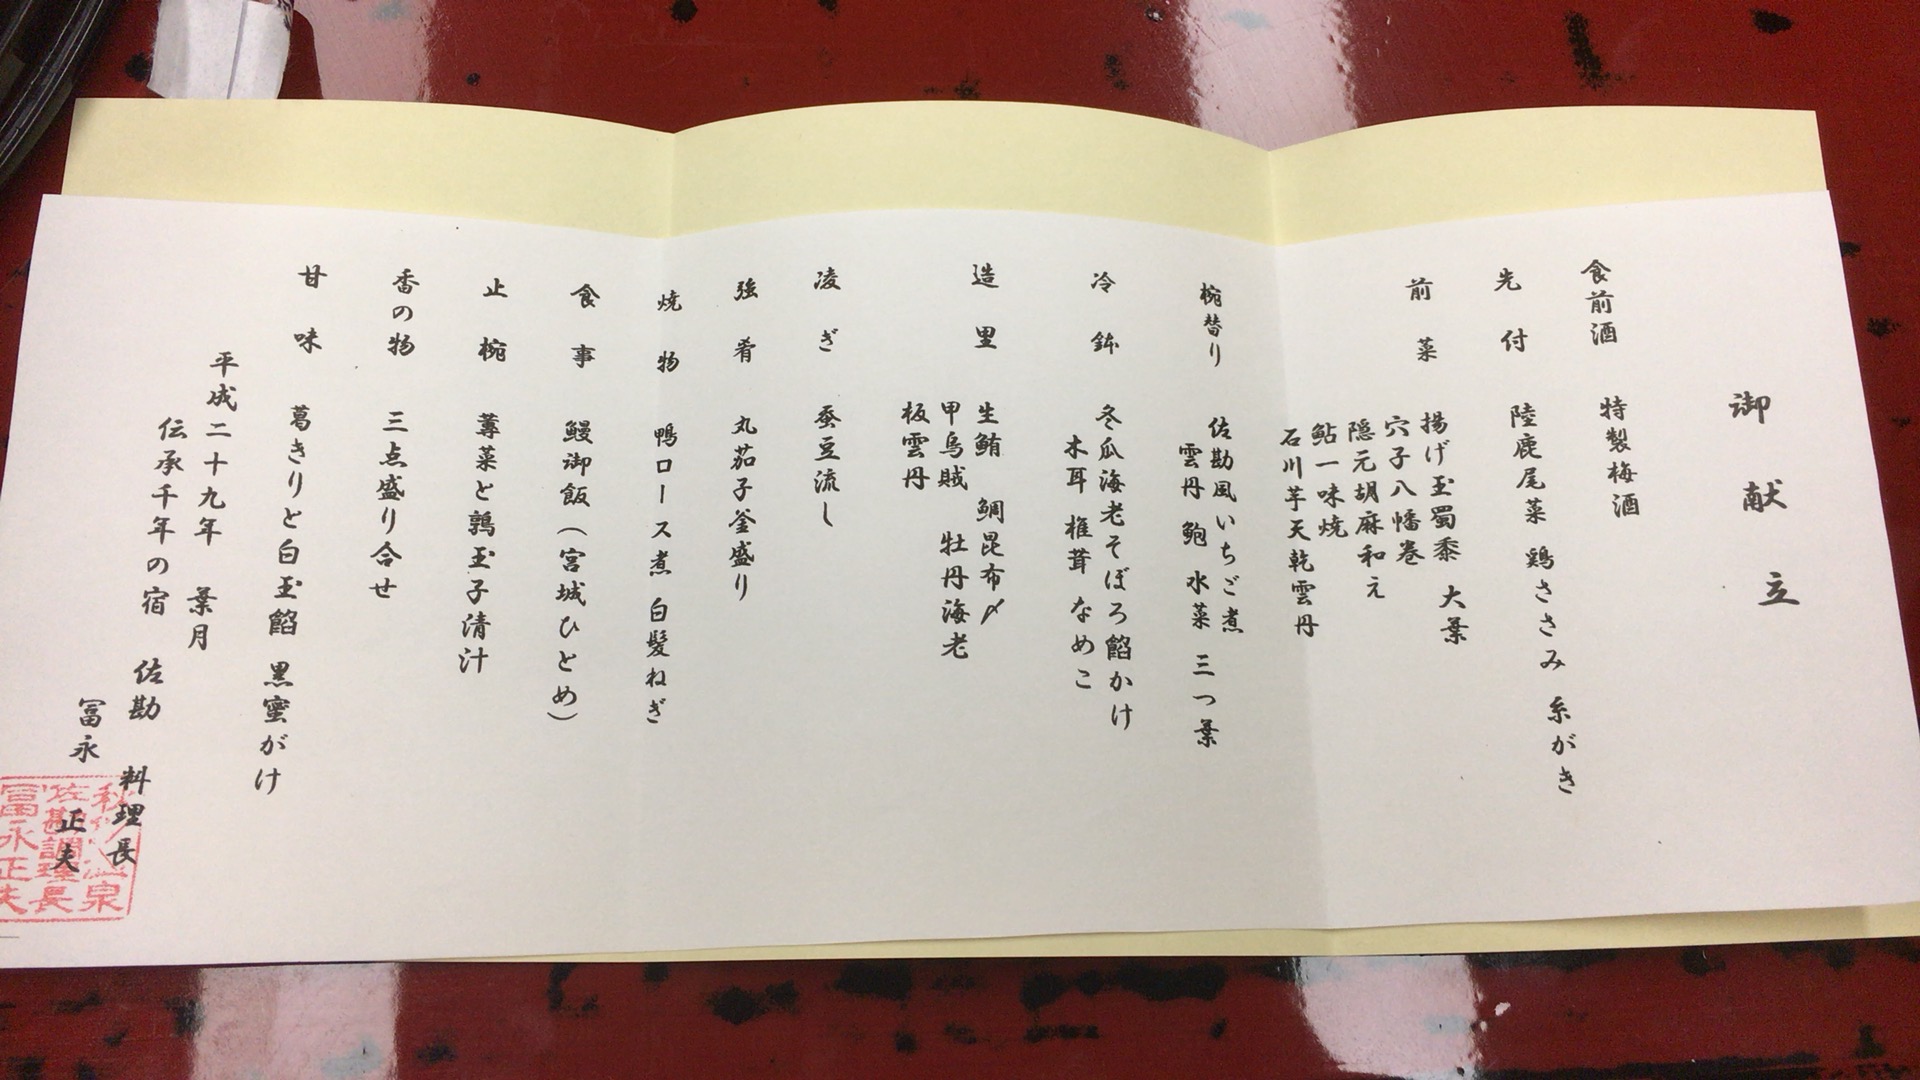 御献立
食前酒　特製梅酒
先付　陸鹿尾菜　鶏ささみ　糸がき
前菜　揚げ玉蜀黍　大葉
穴子八幡巻
隠元胡麻和え
鮎一味焼
石川芋天乾雲丹
椀替り　佐勘風いちご煮
雲丹　鮑　水菜　三つ葉
冷鉢　冬瓜海老そぼろ餡かけ
木耳　椎茸　なめこ
造里　生鮪　鯛昆布〆
甲烏賊　牡丹海老
板雲丹
凌ぎ　蚕豆流し
強肴　丸茄子釜盛り
焼物　鴨ロース煮　白髪ねぎ
食事　鰻御飯（宮城ひとめ）
止椀　蓴菜と鶉玉子清汁
香の物　三点盛り合せ
甘味　葛きりと白玉餡　黒蜜がけ
平成二十九年　葉月
伝承千年の宿　佐勘　料理長
冨永　正夫
佐勘調理長
冨永正夫